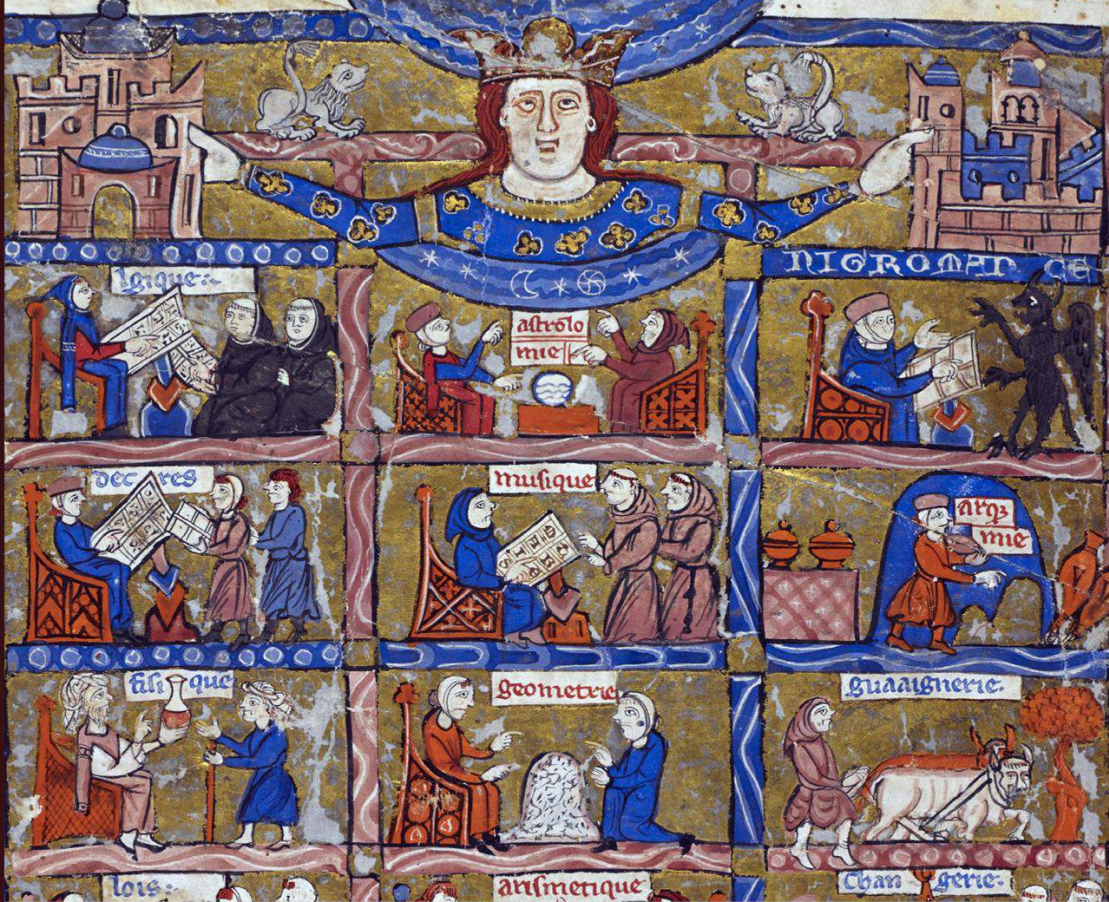 logique
NIGROMANCE
astrolo
mie
decres
musique
arqz
mie
fisique
geometrie
guaaignerie
lois
arismetique
changerie